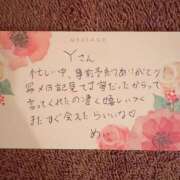 MESSAGE
Yさん
忙しい中、事前予約ありがとう!
写メ日記見て丁寧だったからって
言ってくれたの凄く嬉しいっ
またすぐ会えたらいいな♡
めい